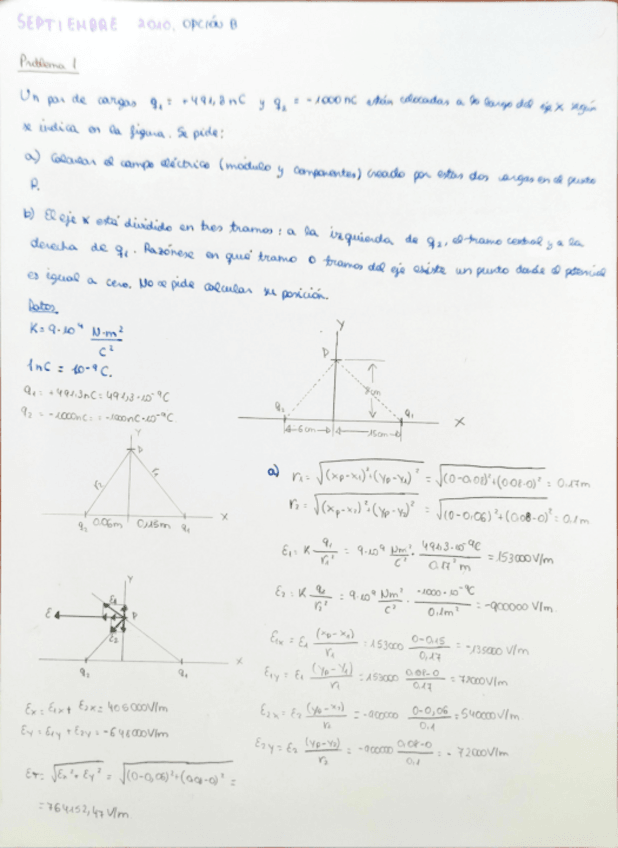 SEPTIEMBRE 2010, OPCIÓN B
Problema 1
Un par de cargas q₁ = +491,3 nC y q₂ = -1000 nC están colocadas a lo largo del eje X según
se indica en la figura. Se pide:
a) Calcular el campo eléctrico (módulo y componentes) creado por estas dos cargas en el punto
P.
b) El eje x está dividido en tres tramos: a la izquierda de q₂, el tramo central y a la
derecha de q₁. Razónese en qué tramo o tramos del eje existe un punto donde el potencial
es igual a cero. No se pide calcular su posición.
Datos
K = 9·10⁹ N·m²/C²
1nC = 10⁻⁹C.
q₁ = +491.3nC = 491,3·10⁻⁹C
q₂ = -1000nC = -1000nC·10⁻⁹C
Y
P
8cm
q₂ q₁ X
6cm 15cm
Y
P
r₂ r₁
q₂ 0.06m 0,15m q₁ X
a) r₁ = √((xp-x₁)²+(yp-y₁)²) = √((0-0,08)²+(0.08-0)²) = 0.17m
r₂ = √((xp-x₁)²+(yp-y₂)²) = √((0-0,06)²+(0.08-0)²) = 0.1m
E₁ = K q₁/r₁² = 9·10⁹ Nm²/C² · 491,3·10⁻⁹C/0.17² m = 153000 V/m
E₂ = K q₂/r₂² = 9·10⁹ Nm²/C² · -1000·10⁻⁹C/0.1m² = -900000 V/m.
E₁x = E₁ (xp-x₁)/r₁ = 153000 0-0.15/0,17 = -135000 V/m
E₁y = E₁ (yp-y₁)/r₁ = 153000 0.08-0/0.17 = 72000 V/m
E₂x = E₂ (xp-x₁)/r₂ = -900000 0-0,06/0.1 = 540000 V/m
E₂y = E₂ (yp-y₂)/r₂ = -900000 0.08-0/0.1 = -72000 V/m
Y
E₁
E P
E₂
q₂ q₁ X
Ex = E₁x + E₂x = 405000 V/m
Ey = E₁y + E₂y = -648000 V/m
ET = √(Ex²+Ey²) = √((0-0,06)²+(0.08-0)²) =
= 764152,47 V/m